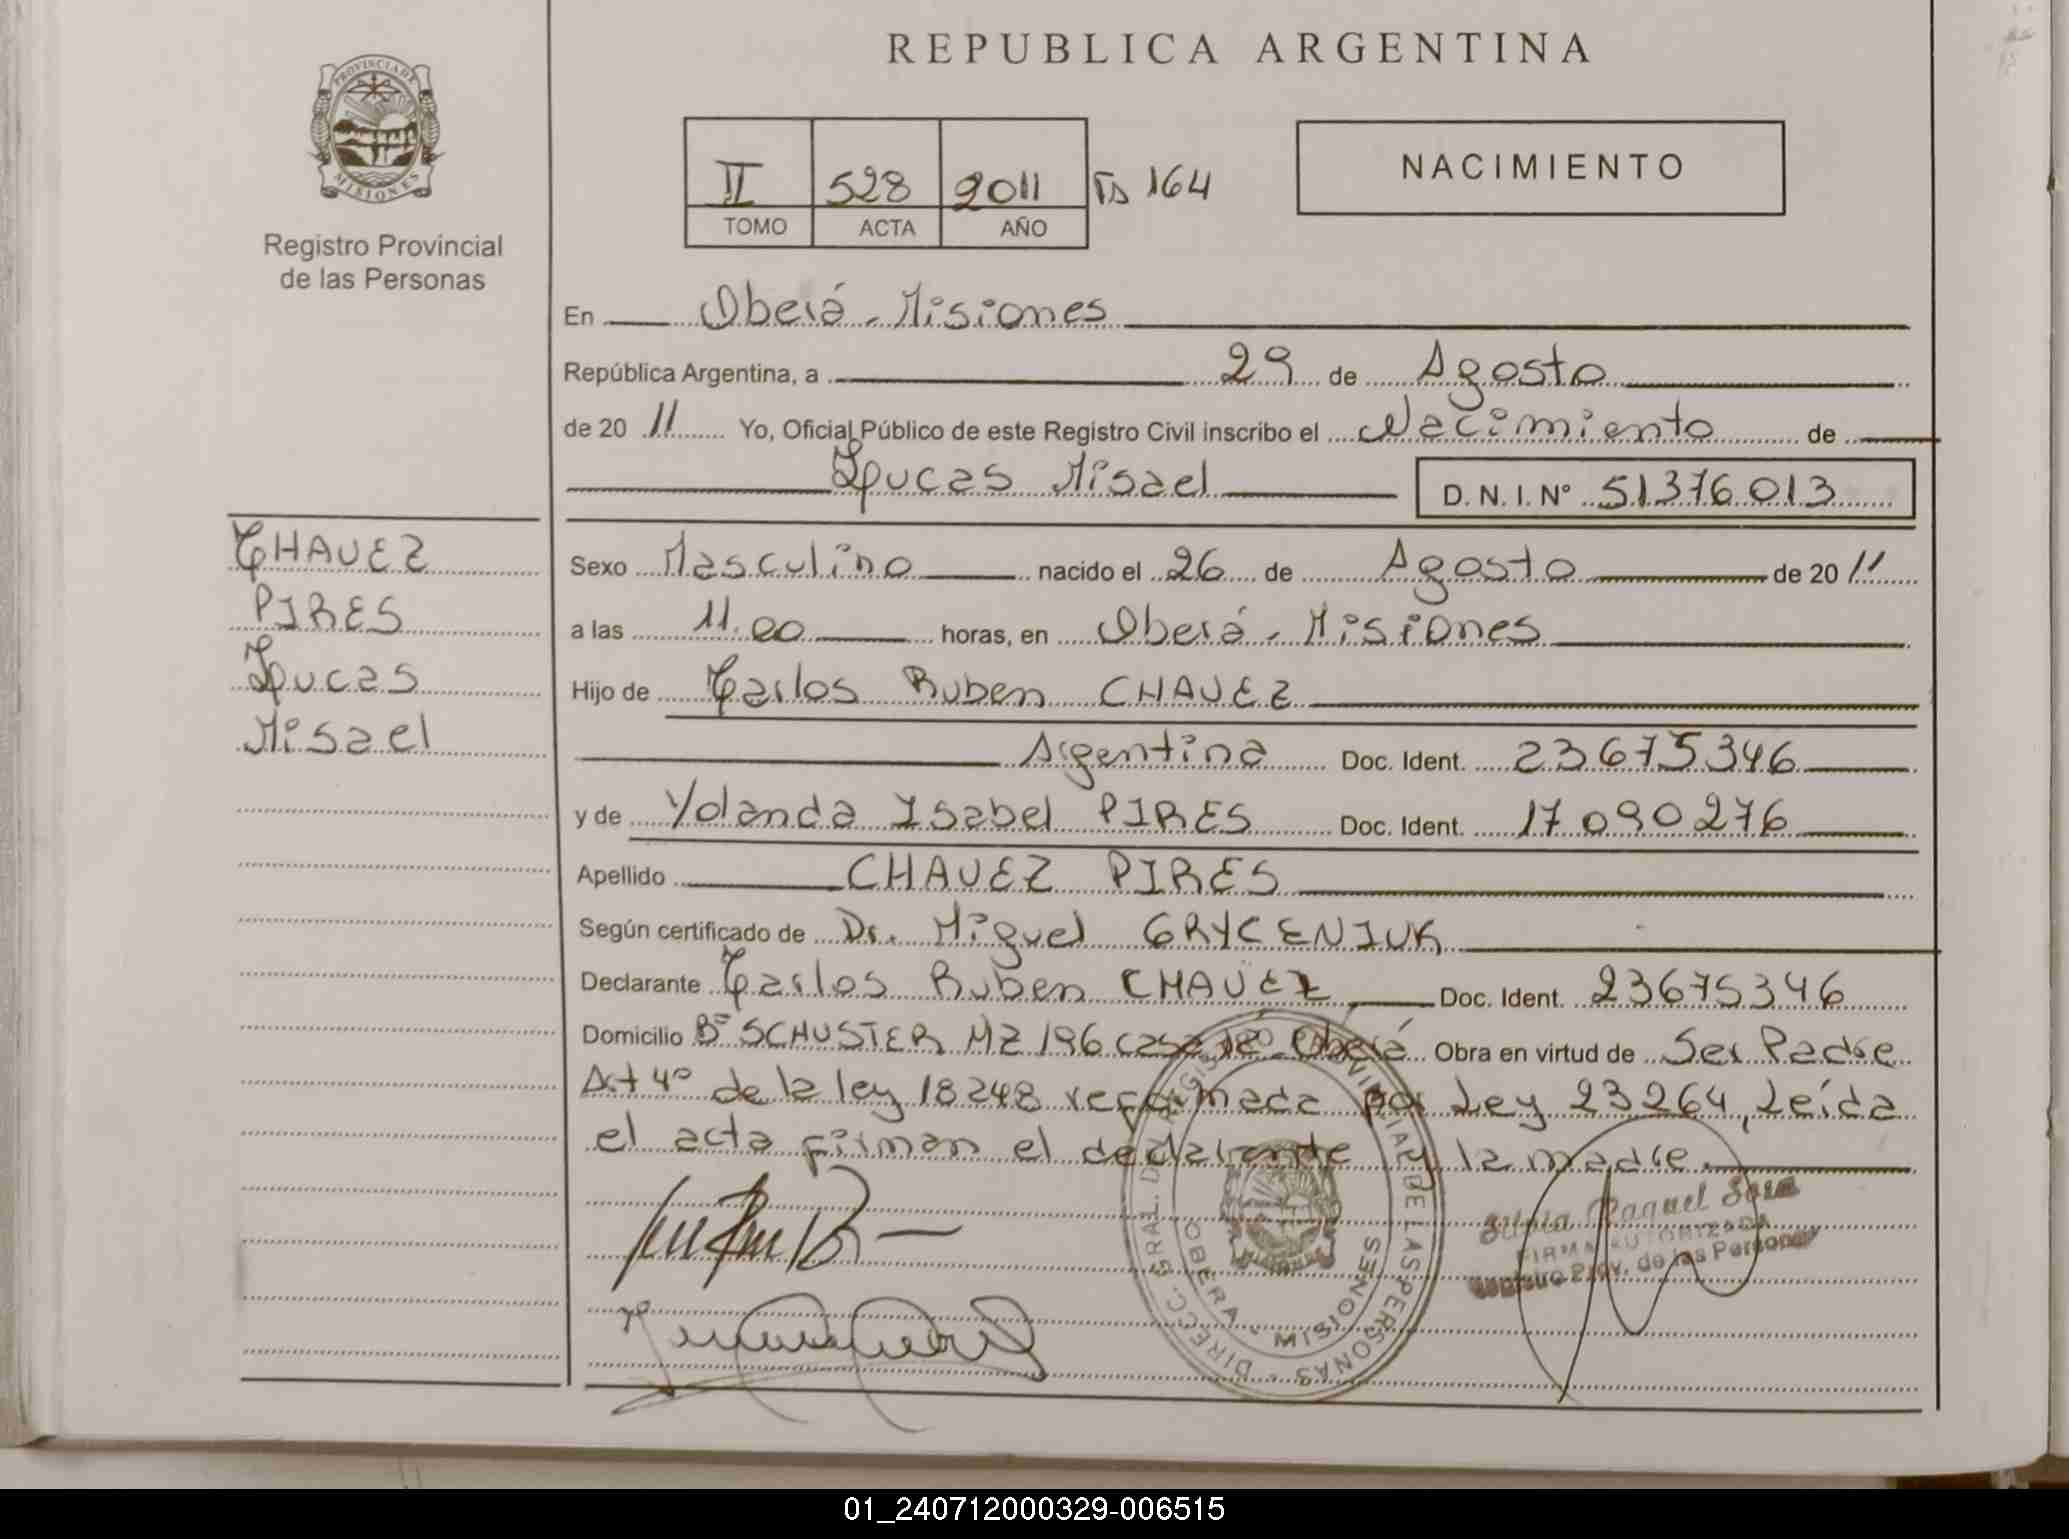 REPUBLICA ARGENTINA
PROVINCIA DE MISIONES
Registro Provincial
de las Personas
II 528 2011 Fs 164
TOMO ACTA AÑO
NACIMIENTO
En Oberá - Misiones
República Argentina, a 29 de Agosto
de 20 11 Yo, Oficial Público de este Registro Civil inscribo el Nacimiento de
Lucas Misael D. N. I. Nº 51376013
CHAVEZ
PIRES
Lucas
Misael
Sexo Masculino nacido el 26 de Agosto de 20 11
a las 11.00 horas, en Oberá - Misiones
Hijo de Carlos Ruben CHAVEZ
Argentina Doc. Ident. 23675346
y de Yolanda Ysabel PIRES Doc. Ident. 17090276
Apellido CHAVEZ PIRES
Según certificado de Dr. Miguel GRYCENIUK
Declarante Carlos Ruben CHAVEZ Doc. Ident. 23675346
Domicilio Bº SCHUSTER MZ 196 casa 18 - Oberá Obra en virtud de Ser Padre
Art 4º de la ley 18248 reformada por Ley 23264, Leída
el acta firman el declarante y la madre.
DIRECC. GRAL. DE REGISTRO PROVINCIAL DE LAS PERSONAS
OBERA - MISIONES
Silvia Raquel Sosa
FIRMA AUTORIZADA
Registro Prov. de las Personas
01_240712000329-006515